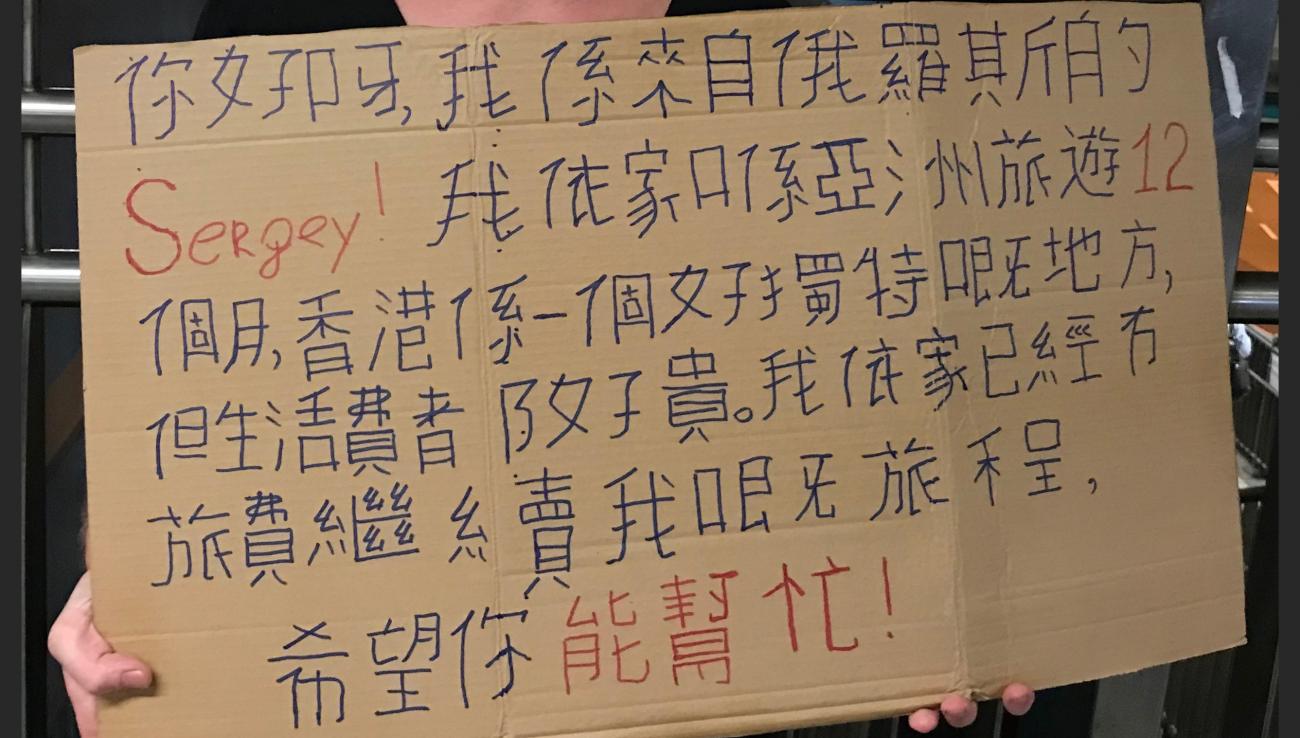 你好呀,我係來自俄羅斯的
Sergey! 我依家口係亞洲州旅遊12
個月,香港係一個好獨特嘅地方,
但生活費者陔好貴。我依家已經冇
旅費繼續我嘅旅程,
希望你能幫忙!